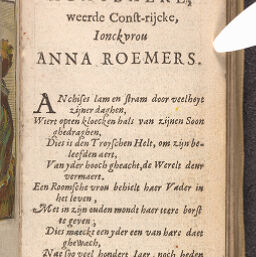 weerde Const-rijcke,
Ionckvrou
ANNA ROEMERS.
ANchises lam en stram door veelheyt
zijner daghen,
Wiert op een kloecken hals van zijnen Soon
ghedraghen,
Dies is den Troyschen Helt, om zijn be-
leefden aert,
Van yder hooch gheacht, de Werelt deur
vermaert.
Een Roomsche vrou behielt haer Vader in
het leven,
Met in zijn ouden mondt haer teere borst
te geven;
Dies maeckt een yder een van hare daet
ghewach,
Nae soo veel hondert Jaer, noch heden